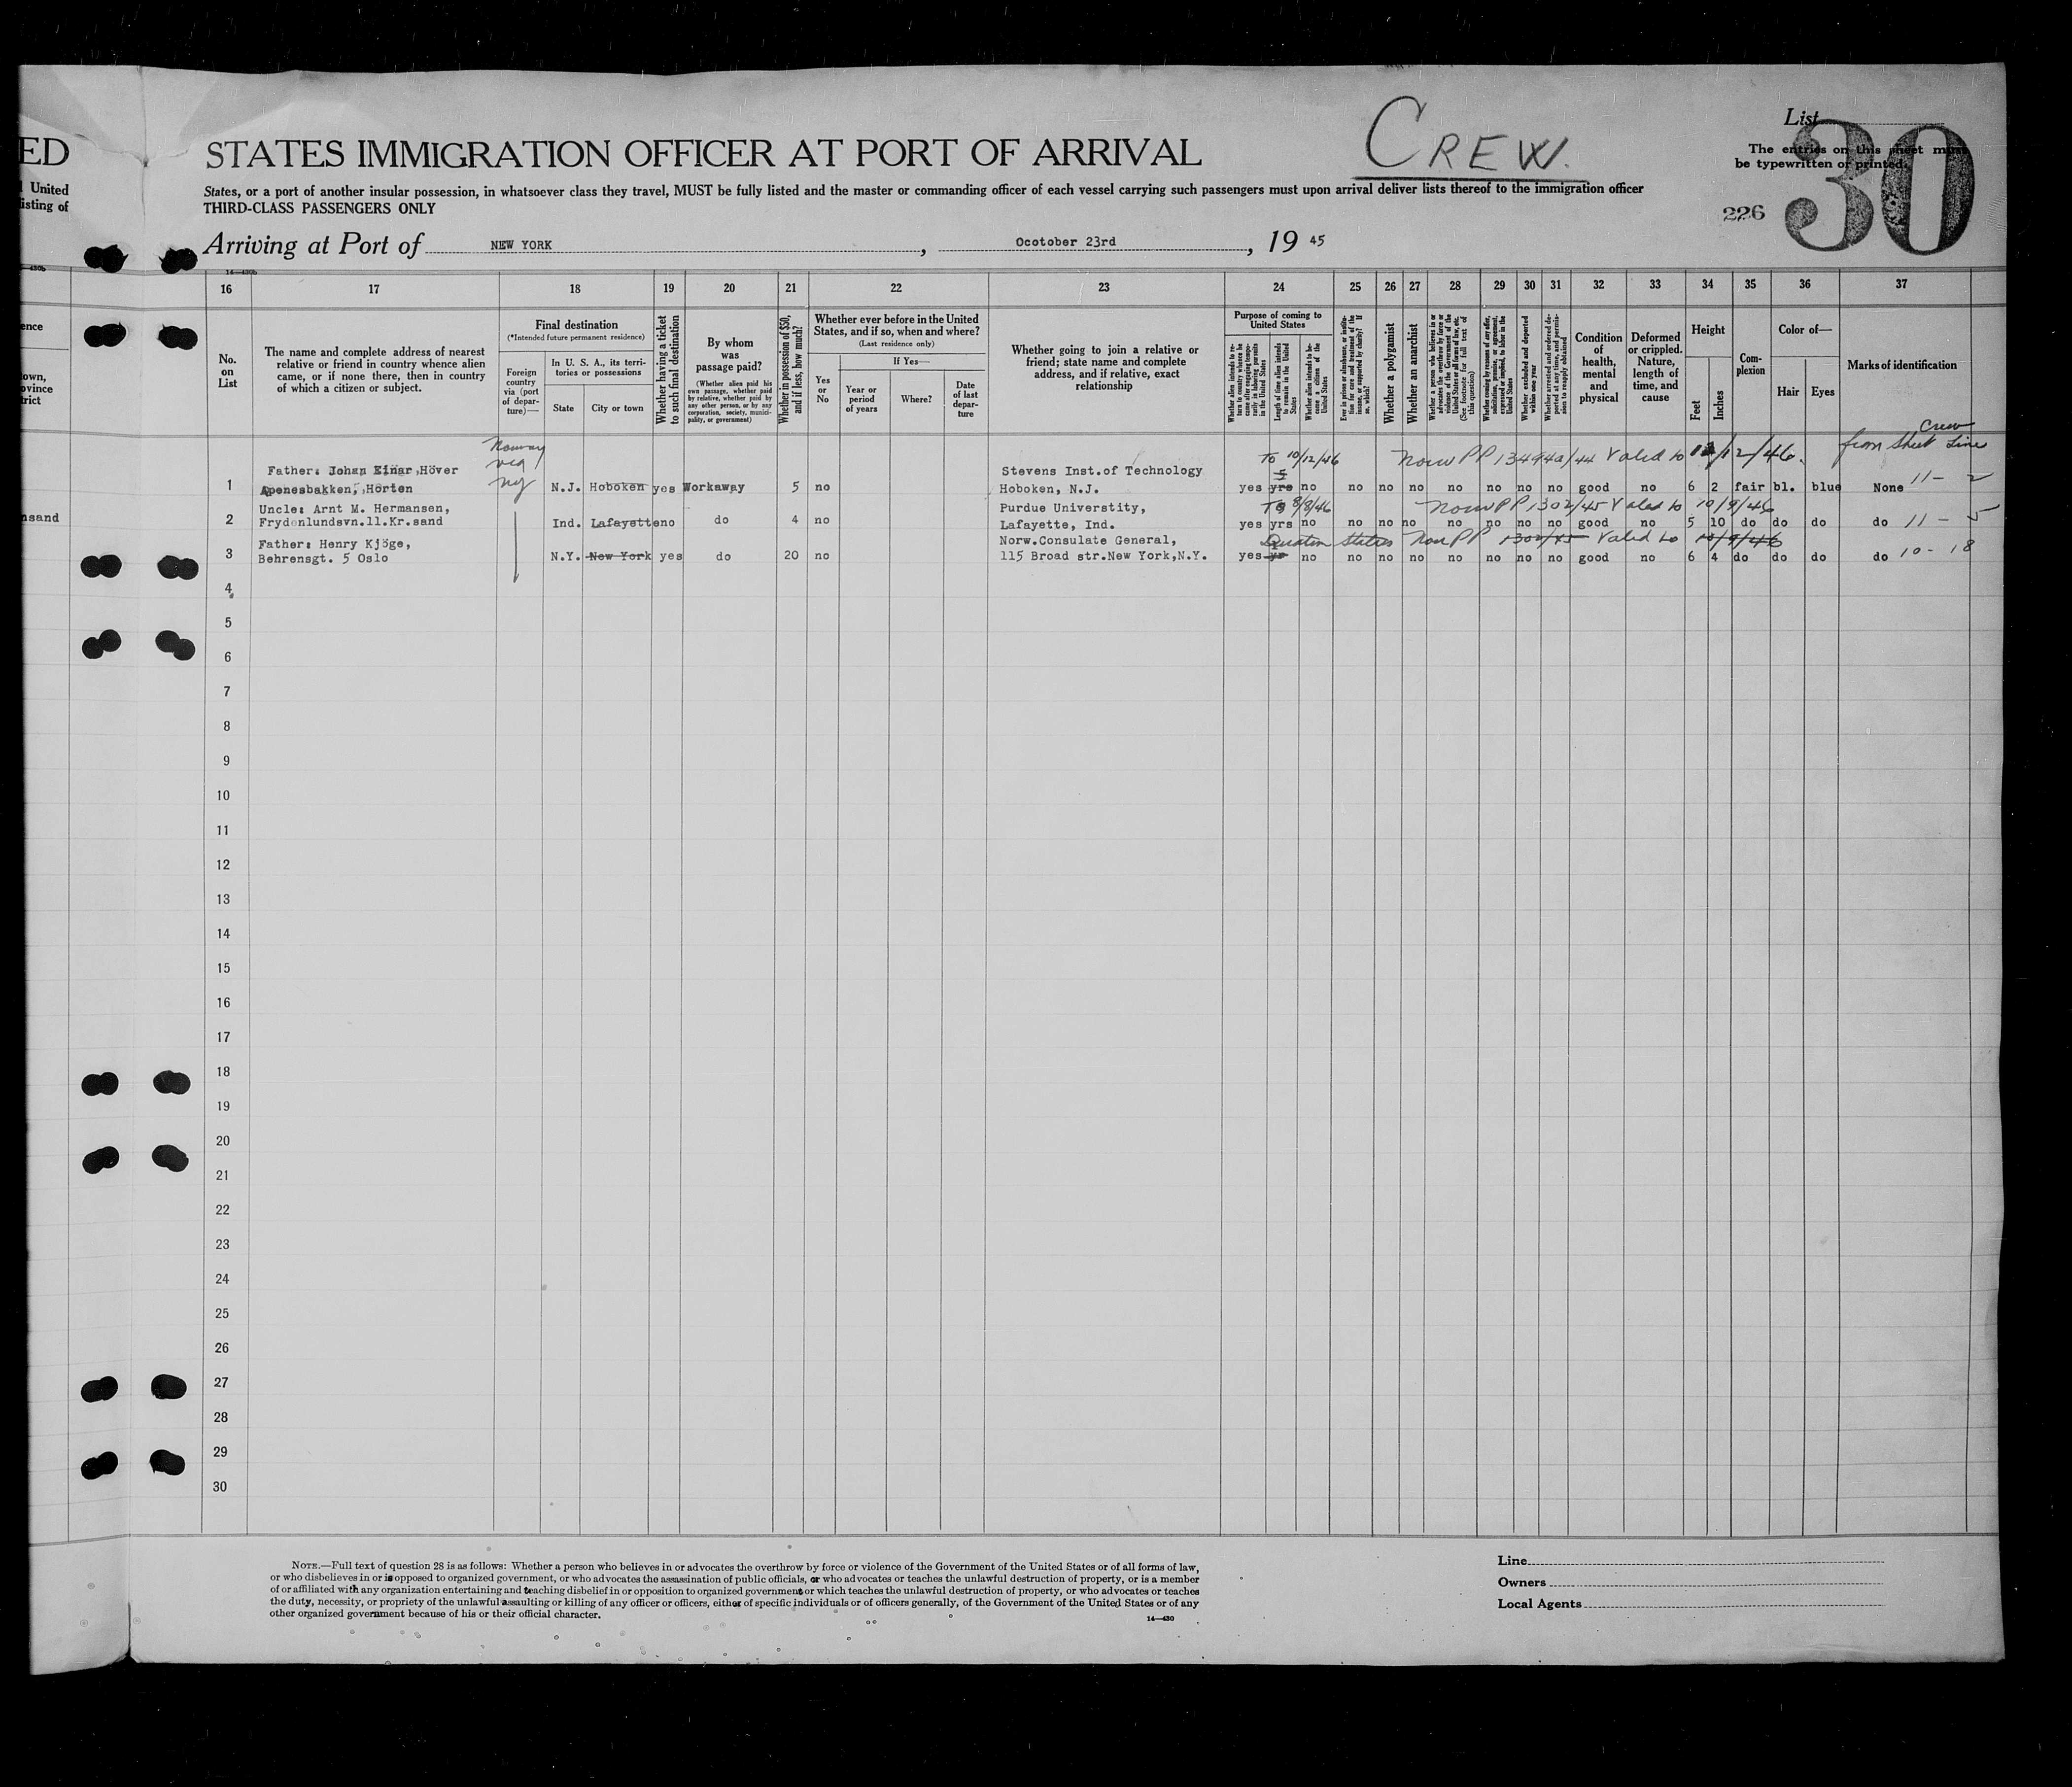 ED
STATES IMMIGRATION OFFICER AT PORT OF ARRIVAL
CREW.
List
30
The entries on this sheet must
be typewritten or printed.
United
isting of
States, or a port of another insular possession, in whatsoever class they travel, MUST be fully listed and the master or commanding officer of each vessel carrying such passengers must upon arrival deliver lists thereof to the immigration officer
THIRD-CLASS PASSENGERS ONLY
226
Arriving at Port of NEW YORK, Ocotober 23rd, 19 45
14—430b
16 17 18 19 20 21 22 23 24 25 26 27 28 29 30 31 32 33 34 35 36 37
No. on List
The name and complete address of nearest
relative or friend in country whence alien
came, or if none there, then in country
of which a citizen or subject.
Final destination
(*Intended future permanent residence)
Foreign country via (port of departure)—
In U. S. A., its territories or possessions
State
City or town
Whether having a ticket to such final destination
By whom was passage paid?
(Whether alien paid his own passage, whether paid by relative, whether paid by any other person, or by any corporation, society, municipality, or government)
Whether in possession of $50, and if less, how much?
Whether ever before in the United States, and if so, when and where?
(Last residence only)
Yes or No
If Yes—
Year or period of years
Where?
Date of last departure
Whether going to join a relative or
friend; state name and complete
address, and if relative, exact
relationship
Purpose of coming to United States
Whether alien intends to return to country whence he came after engaging temporarily in laboring pursuits in the United States
Length of time alien intends to remain in the United States
Whether alien intends to become a citizen of the United States
Ever in prison or almshouse, or institution for care and treatment of the insane, or supported by charity? If so, which?
Whether a polygamist
Whether an anarchist
Whether a person who believes in or advocates the overthrow by force or violence of the Government of the United States or all forms of law, etc. (See footnote for full text of this question)
Whether coming by reason of any offer, solicitation, promise, or agreement, expressed or implied, to labor in the United States
Whether excluded and deported within one year
Whether arrested and ordered deported at any time, and permission to reapply obtained
Condition of health, mental and physical
Deformed or crippled. Nature, length of time, and cause
Height
Feet
Inches
Complexion
Color of—
Hair
Eyes
Marks of identification
ence
own,
ovince
trict
nsand
Norway
via
ny
To 10/12/46 Norw PP 13494a/44 Valid to 12/12/46. Crew from Sheet Line
1 Father: Johan Einar Höver
Apenesbakken, Horten N.J. Hoboken yes Workaway 5 no Stevens Inst.of Technology
Hoboken, N.J. yes yrs no no no no no no no no good no 6 2 fair bl. blue None 11 - 2
To 8/8/46 Norw PP 1302/45 Valid to 10/9/46
2 Uncle: Arnt M. Hermansen,
Frydenlundsvn.11.Kr.sand Ind. Lafayette no do 4 no Purdue Universtity,
Lafayette, Ind. yes yrs no no no no no no no no good no 5 10 do do do do 11 - 5
Norw PP 1302/45 Valid to 10/9/46
3 Father: Henry Kjöge,
Behrensgt. 5 Oslo N.Y. New York yes do 20 no Norw.Consulate General,
115 Broad str.New York,N.Y. yes yr no no no no no no no no good no 6 4 do do do do 10 - 18
4
5
6
7
8
9
10
11
12
13
14
15
16
17
18
19
20
21
22
23
24
25
26
27
28
29
30
NOTE.—Full text of question 28 is as follows: Whether a person who believes in or advocates the overthrow by force or violence of the Government of the United States or of all forms of law,
or who disbelieves in or is opposed to organized government, or who advocates the assassination of public officials, or who advocates or teaches the unlawful destruction of property, or is a member
of or affiliated with any organization entertaining and teaching disbelief in or opposition to organized government or which teaches the unlawful destruction of property, or who advocates or teaches
the duty, necessity, or propriety of the unlawful assaulting or killing of any officer or officers, either of specific individuals or of officers generally, of the Government of the United States or of any
other organized government because of his or their official character.
14—430
Line
Owners
Local Agents